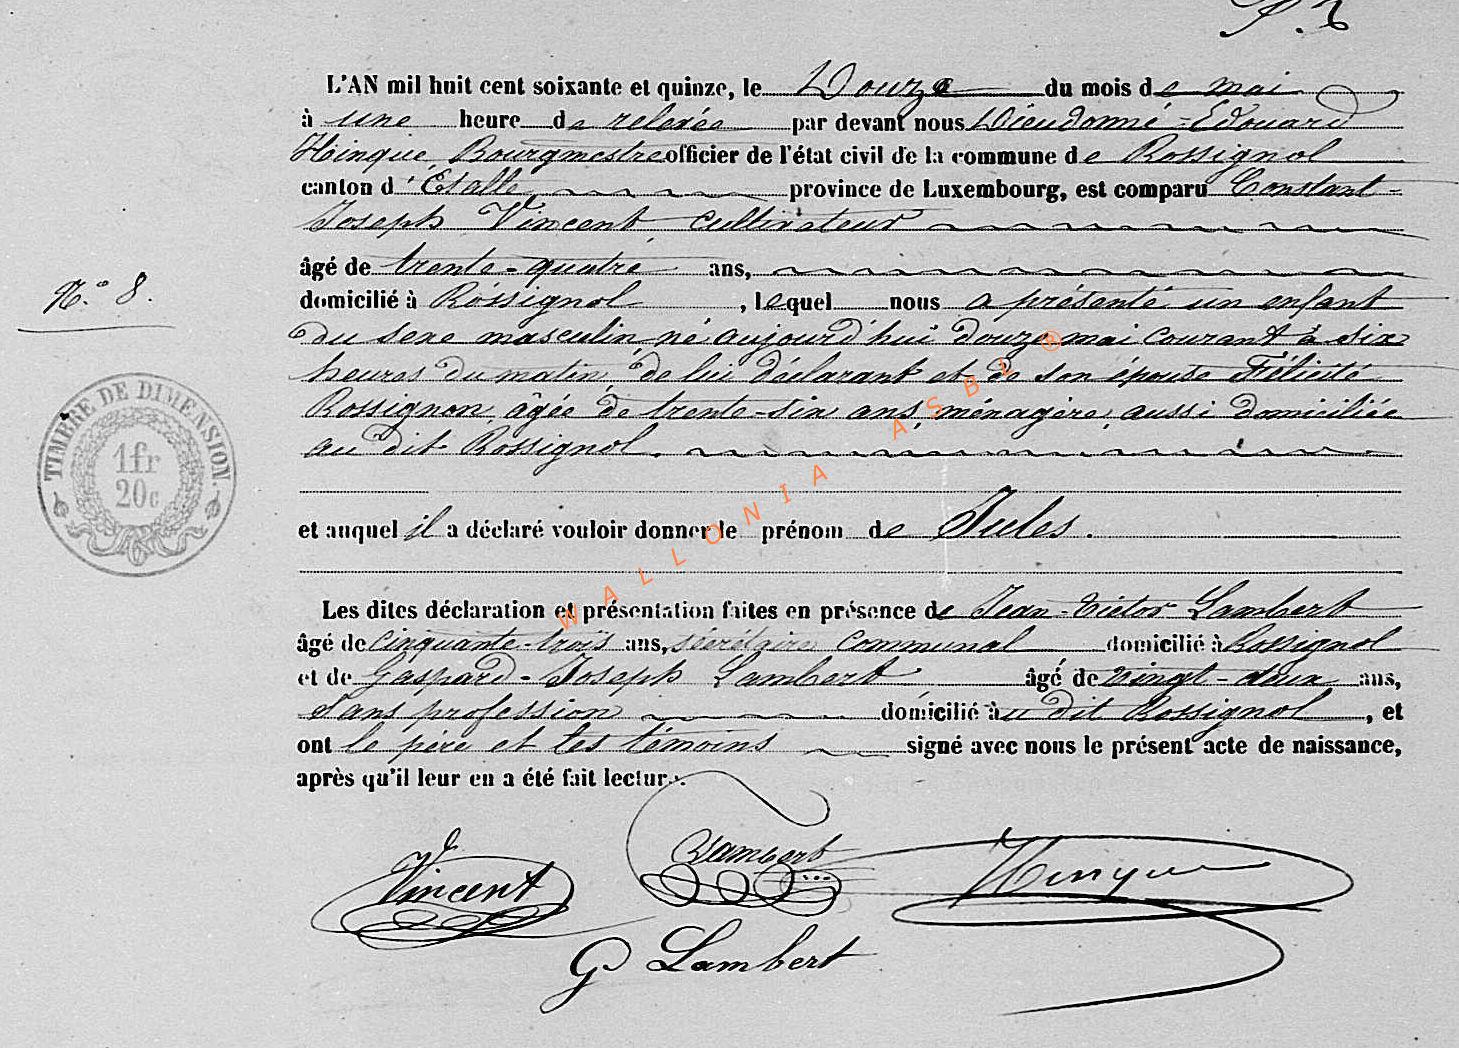 L'AN mil huit cent soixante et quinze, le Douze du mois de mai
à une heure de relevée par devant nous Dieudonné-Edouard
Hinque, Bourgmestre officier de l'état civil de la commune de Rossignol
canton d'Etalle, province de Luxembourg, est comparu Constant-
Joseph Vincent cultivateur
âgé de trente-quatre ans,
N.° 8.
domicilié à Rossignol, lequel nous a présenté un enfant
du sexe masculin, né aujourd'hui douze mai courant à six
heures du matin, de lui déclarant et de son épouse Félicité
Rossignon, âgée de trente-six ans, ménagère, aussi domiciliée
au dit Rossignol.
TIMBRE DE DIMENSION.
1fr
20c
et auquel il a déclaré vouloir donner le prénom de Jules.
Les dites déclaration et présentation faites en présence de Jean-Victor Lambert
âgé de cinquante-trois ans, secrétaire communal domicilié à Rossignol
et de Gaspard-Joseph Lambert âgé de vingt-deux ans,
sans profession domicilié au dit Rossignol, et
ont le père et les témoins signé avec nous le présent acte de naissance,
après qu'il leur en a été fait lecture.
Vincent
Lambert
Hinque
G Lambert
WALLONIA ASBL ®